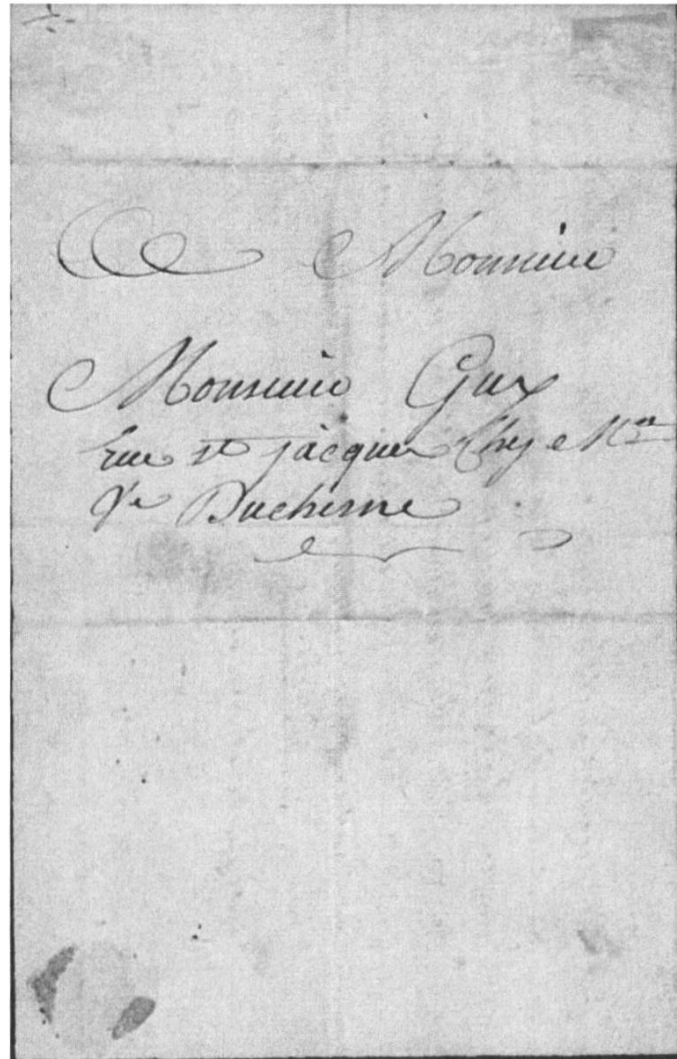 A Monsieur
Monsieur Guy
Rue st jacques Chez Mme
Ve Duchesne